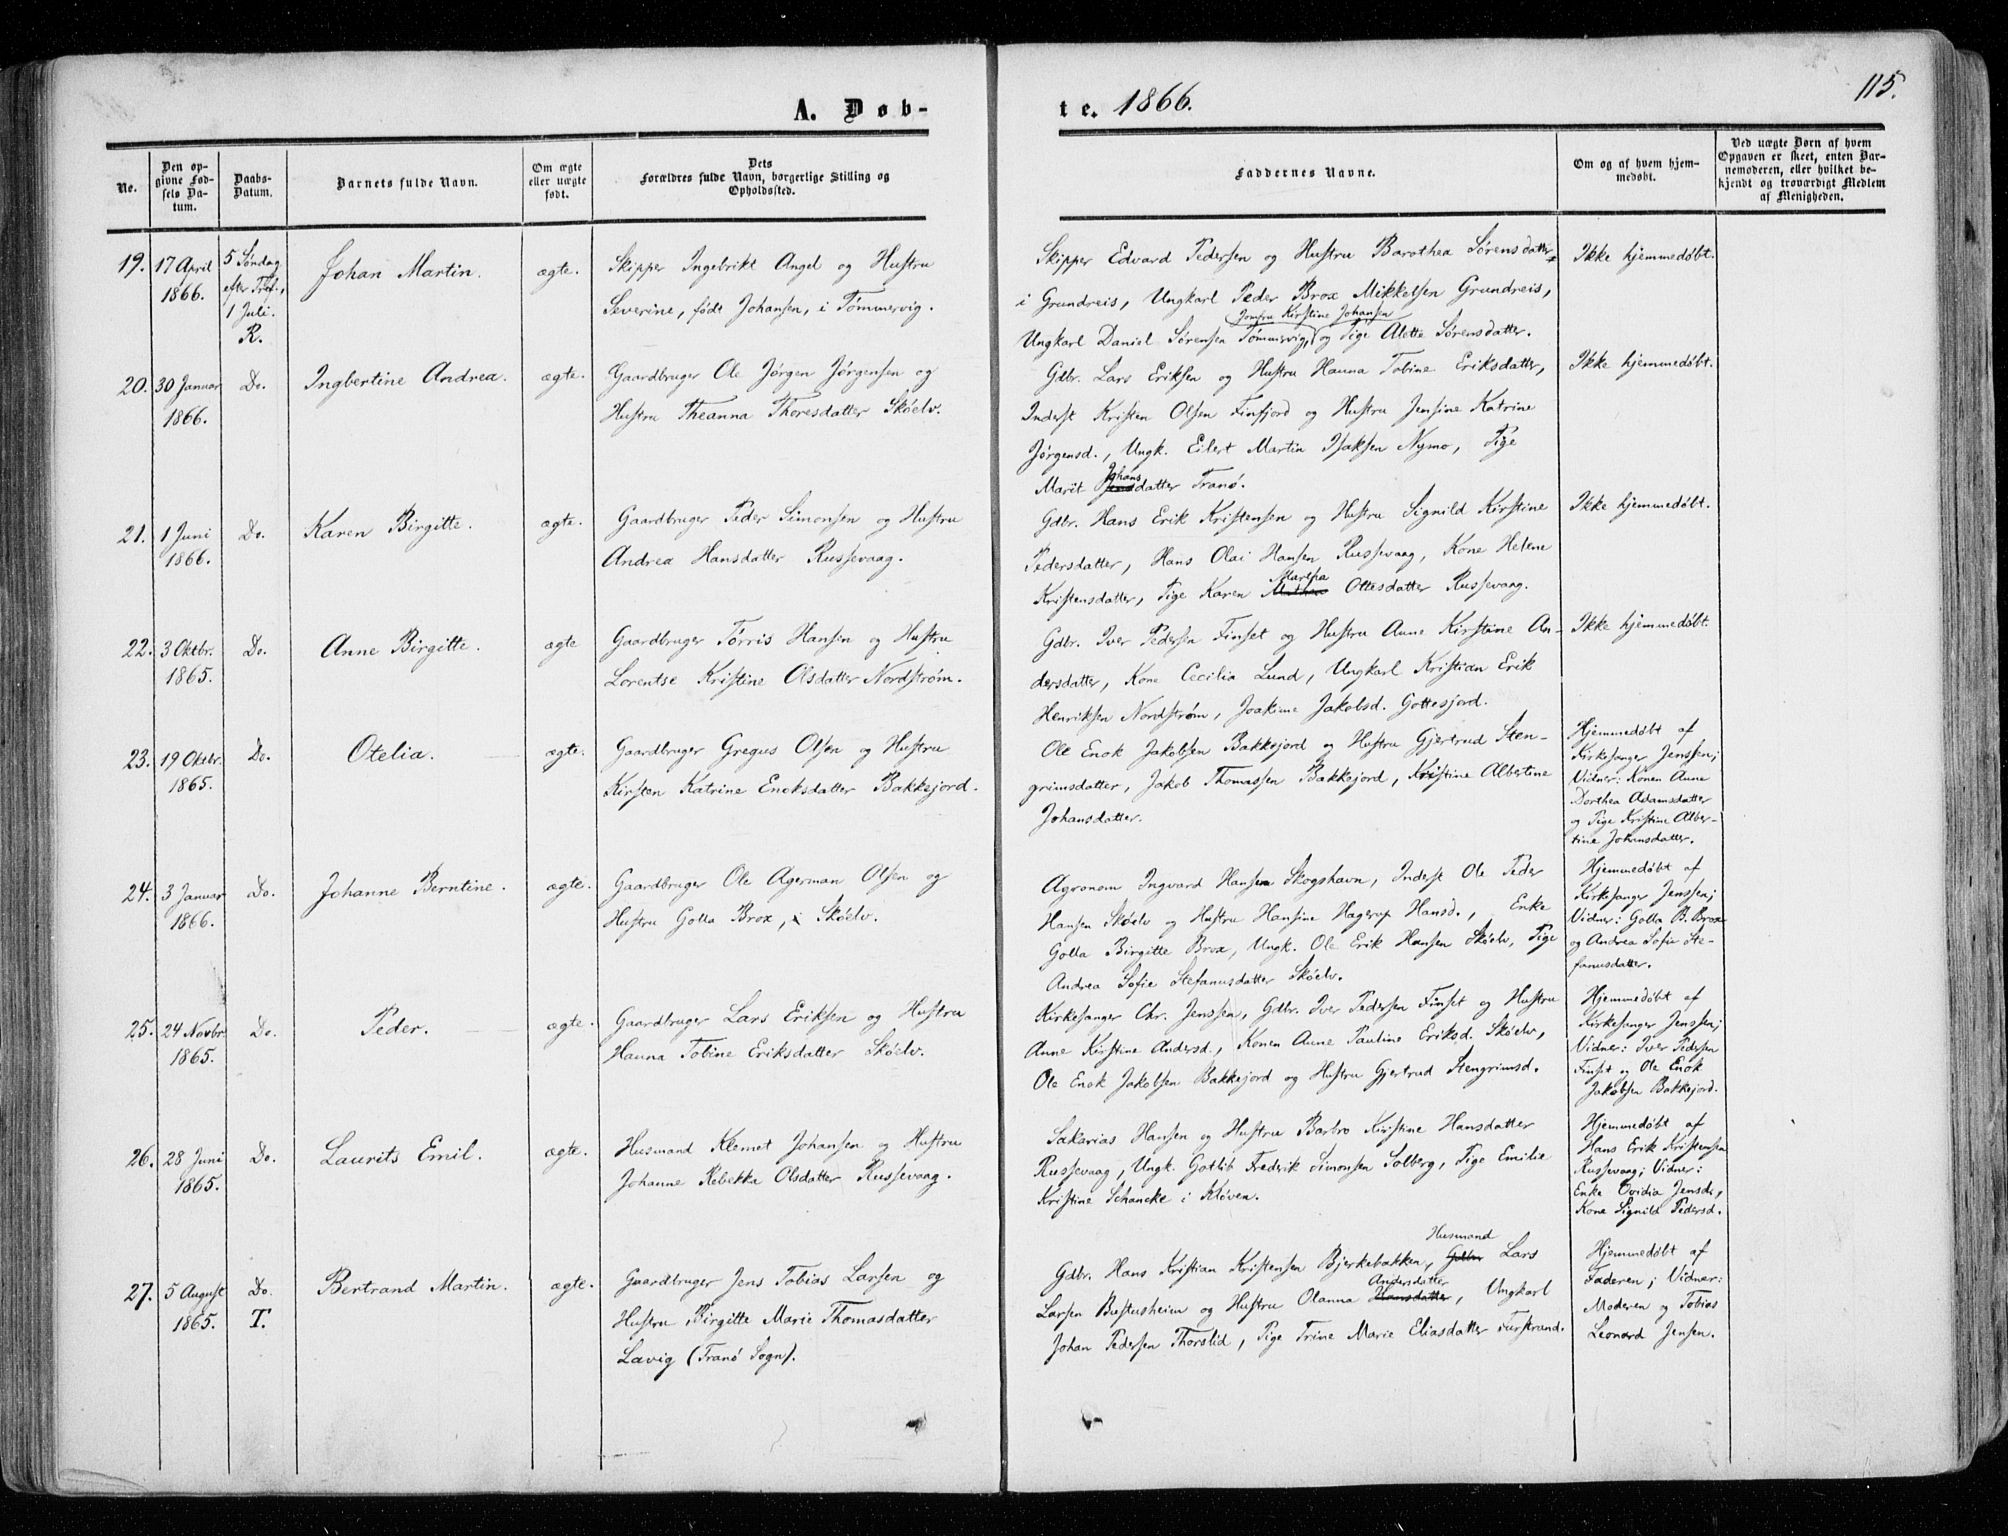 115.
A. Døb-
te. 1866.
No.
Den op-
givne Fød-
sels Da-
tum.
Daabs-
Datum.
Barnets fulde Navn.
Om ægte
eller uægte
født.
Dets
Forældres fulde Navn, borgerlige Stilling og
Opholdssted.
Faddernes Navne.
Om og af hvem hjem-
medøbt.
Ved uægte Børn af hvem
Opgaven er skeet, enten Bar-
nemoderen, eller hvilket be-
kjendt og troværdigt Medlem
af Menigheden.
19.
17 April
1866.
5 Søndag
efter Tref.,
1 Juli.
R.
Johan Martin.
ægte.
Skipper Ingebrikt Angel og Hustru
Severine, født Johansen, i Tømmervig.
Skipper Edvard Pedersen og Hustru Barothea Sørensdatter
i Grundreis, Ungkarl Peder Brox Mikkelsen Grundreis,
Jomfru Kirstine Johansen
Ungkarl Daniel Sørensen Tømmervig, og Pige Alette Sørensdatter.
Ikke hjemmedøbt.
20.
30 Januar
1866.
Do.
Ingbertine Andrea.
ægte.
Gaardbruger Ole Jørgen Jørgensen og
Hustru Theanna Thoresdatter Skóelv.
Gdbr. Lars Eriksen og Hustru Hanna Tobine Eriksdatter,
Inderst Kristen Olsen Finfjord og Hustru Jensine Katrine
Jørgensd., Ungk. Eilert Martin Isaksen Nymo, Pige
Johans
Marit Jensdatter Tranø.
Ikke hjemmedøbt.
21.
1 Juni
1866.
Do.
Karen Birgitte.
ægte.
Gaardbruger Peder Simonsen og Hustru
Andrea Hansdatter Russevaag.
Gdbr. Hans Erik Kristensen og Hustru Signild Kirstine
Pedersdatter, Hans Olai Hansen Russevaag, Kone Helene
Martha
Kristensdatter, Pige Karen Mathea Ottesdatter Russevaag.
Ikke hjemmedøbt.
22.
3 Oktbr.
1865.
Do.
Anne Birgitte.
ægte
Gaardbruger Tørris Hansen og Hustru
Lorentse Kristine Olsdatter Nordstrøm.
Gdbr. Iver Pedersen Finset og Hustru Anne Kirstine An-
dersdatter, Kone Cecilia Lund, Ungkarl Kristian Erik
Henriksen Nordstrøm, Joakime Jakobsd. Gottesjord.
Ikke hjemmedøbt.
23.
19 Oktbr.
1865.
Do.
Otelia.
ægte.
Gaardbruger Gregus Olsen og Hustru
Kirsten Katrine Enoksdatter Bakkejord.
Ole Enok Jakobsen Bakkejord og Hustru Gjertrud Sten-
grimsdatter, Jakob Thomassen Bakkejord, Kristine Albertine
Johansdatter.
Hjemmedøbt af
Kirkesanger Jenssen;
Vidner: Konen Anne
Dorthea Adamsdatter
og Pige Kristine Alber-
tine Johansdatter.
24.
3 Januar
1866.
Do.
Johanne Berntine.
ægte.
Gaardbruger Ole Agerman Olsen og
Hustru Golla Brox, i Skóelv.
Agronom Ingvard Hansen Skogshavn, Inderst Ole Peder
Hansen Skóelv og Hustru Hansine Hagerup Hansd., Enke
Golla Birgitte Brox, Ungk. Ole Erik Hansen Skóelv, Pige
Andrea Sofie Stefanusdatter Skóelv.
Hjemmedøbt af
Kirkesanger Jenssen;
Vidner: Golla B. Brox
og Andrea Sofie Ste-
fanusdatter.
25.
24 Novbr.
1865.
Do.
Peder.
ægte.
Gaardbruger Lars Eriksen og Hustru
Hanna Tobine Eriksdatter Skóelv.
Kirkesanger Chr. Jenssen, Gdbr. Iver Pedersen Finset og Hustru
Anne Kirstine Andersd., Konen Anne Pauline Eriksd. Skóelv,
Ole Enok Jakobsen Bakkejord og Hustru Gjertrud Stengrimsd.
Hjemmedøbt af
Kirkesanger Jenssen;
Vidner: Iver Pedersen
Finset og Ole Enok
Jakobsen Bakkejord.
26.
28 Juni
1865.
Do.
Laurits Emil.
ægte.
Husmand Klemet Johansen og Hustru
Johanne Rebekka Olsdatter Russevaag.
Sakarias Hansen og Hustru Barbro Kirstine Hansdatter
Russevaag, Ungk. Gotlib Frederik Simonsen Solberg, Pige Emilie
Kristine Schancke i Kløven.
Hjemmedøbt af
Hans Erik Kristensen
Russevaag; Vidner:
Enke Ovidia Jensd.,
Kone Signild Pedersd.
27.
5 August
1865.
Do.
T.
Bertrand Martin.
ægte.
Gaardbruger Jens Tobias Larsen og
Hustru Birgitte Marie Thomasdatter
Lavig (Tranø Sogn).
Husmand
Gdbr. Hans Kristian Kristensen Bjerkebakken, Gdbr. Lars
Andersdatter
Larsen Bustusheim og Hustru Olanna Hansdatter, Ungkarl
Johan Pedersen Thorslid, Pige Trine Marie Eliasdatter Furstrand.
Hjemmedøbt af
Faderen; Vidner:
Moderen og Tobias
Leonard Jensen.